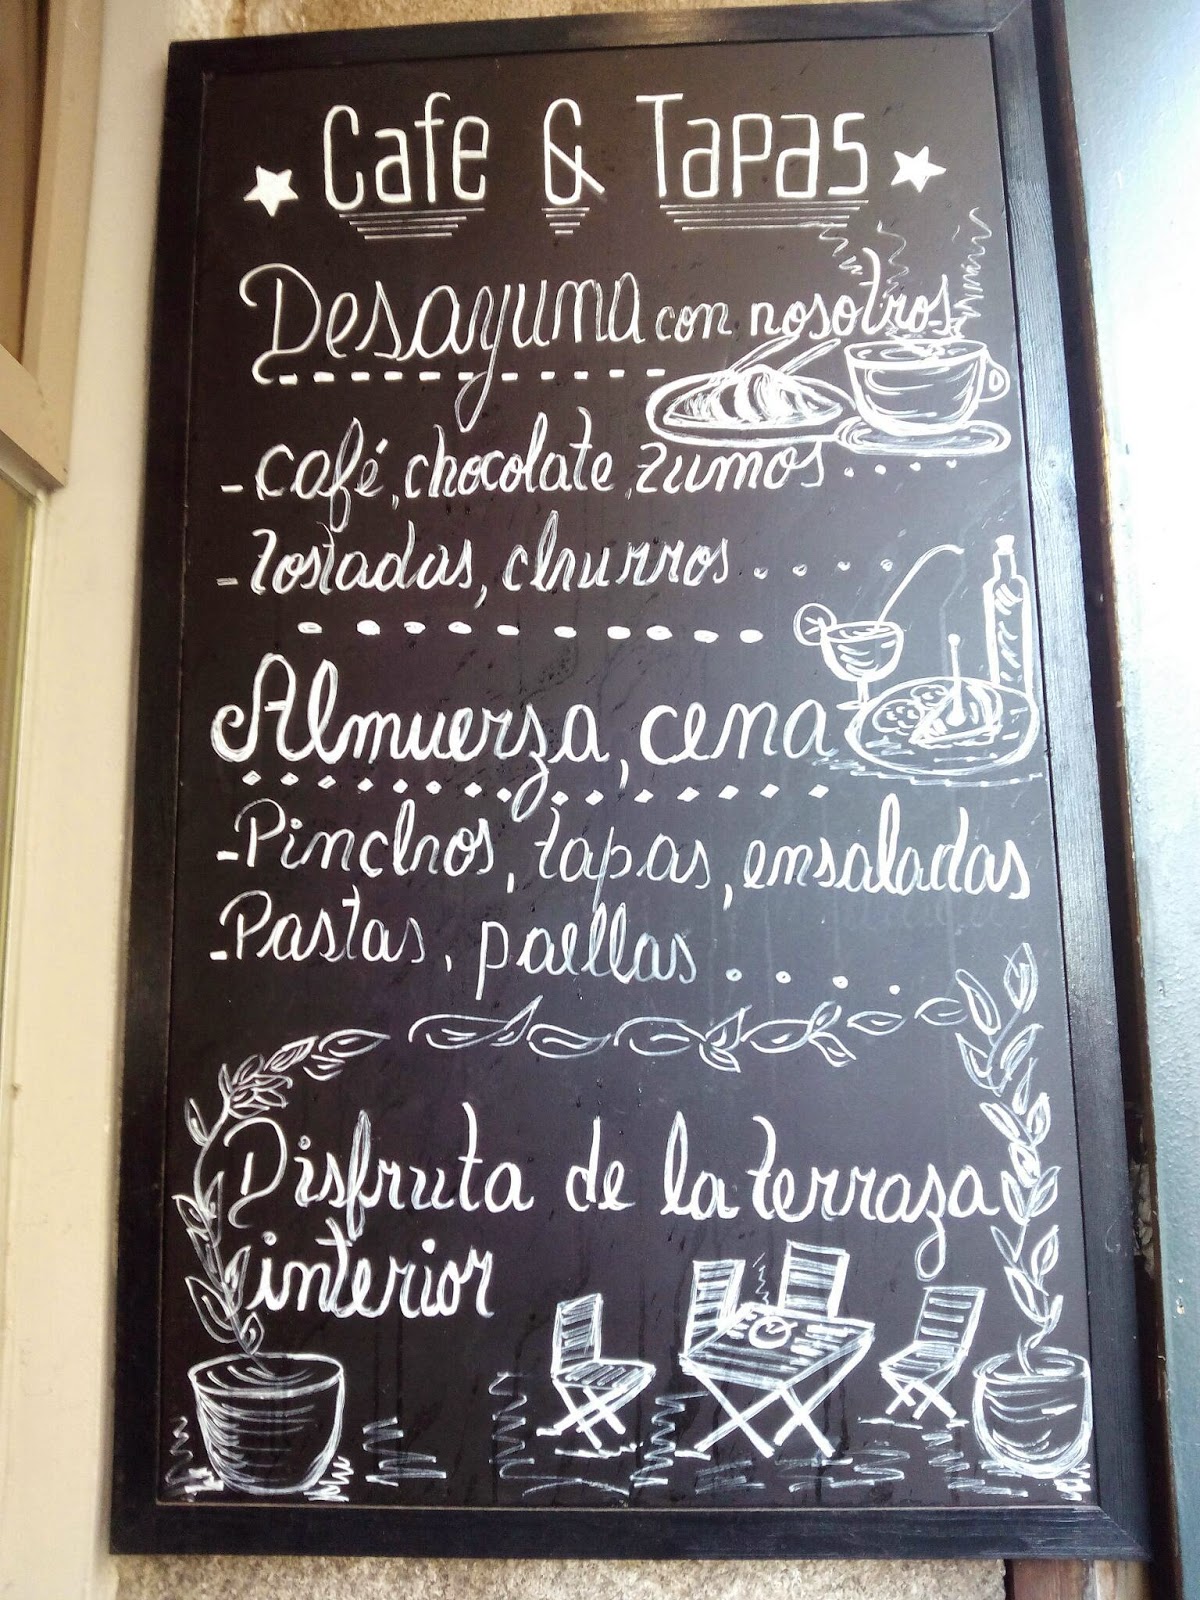 Cafe & Tapas
Desayuna con nosotros
- Café, chocolate, zumos....
- Tostadas, churros....
Almuerza, cena
- Pinchos, tapas, ensaladas
- Pastas, paellas....
Disfruta de la terraza
interior